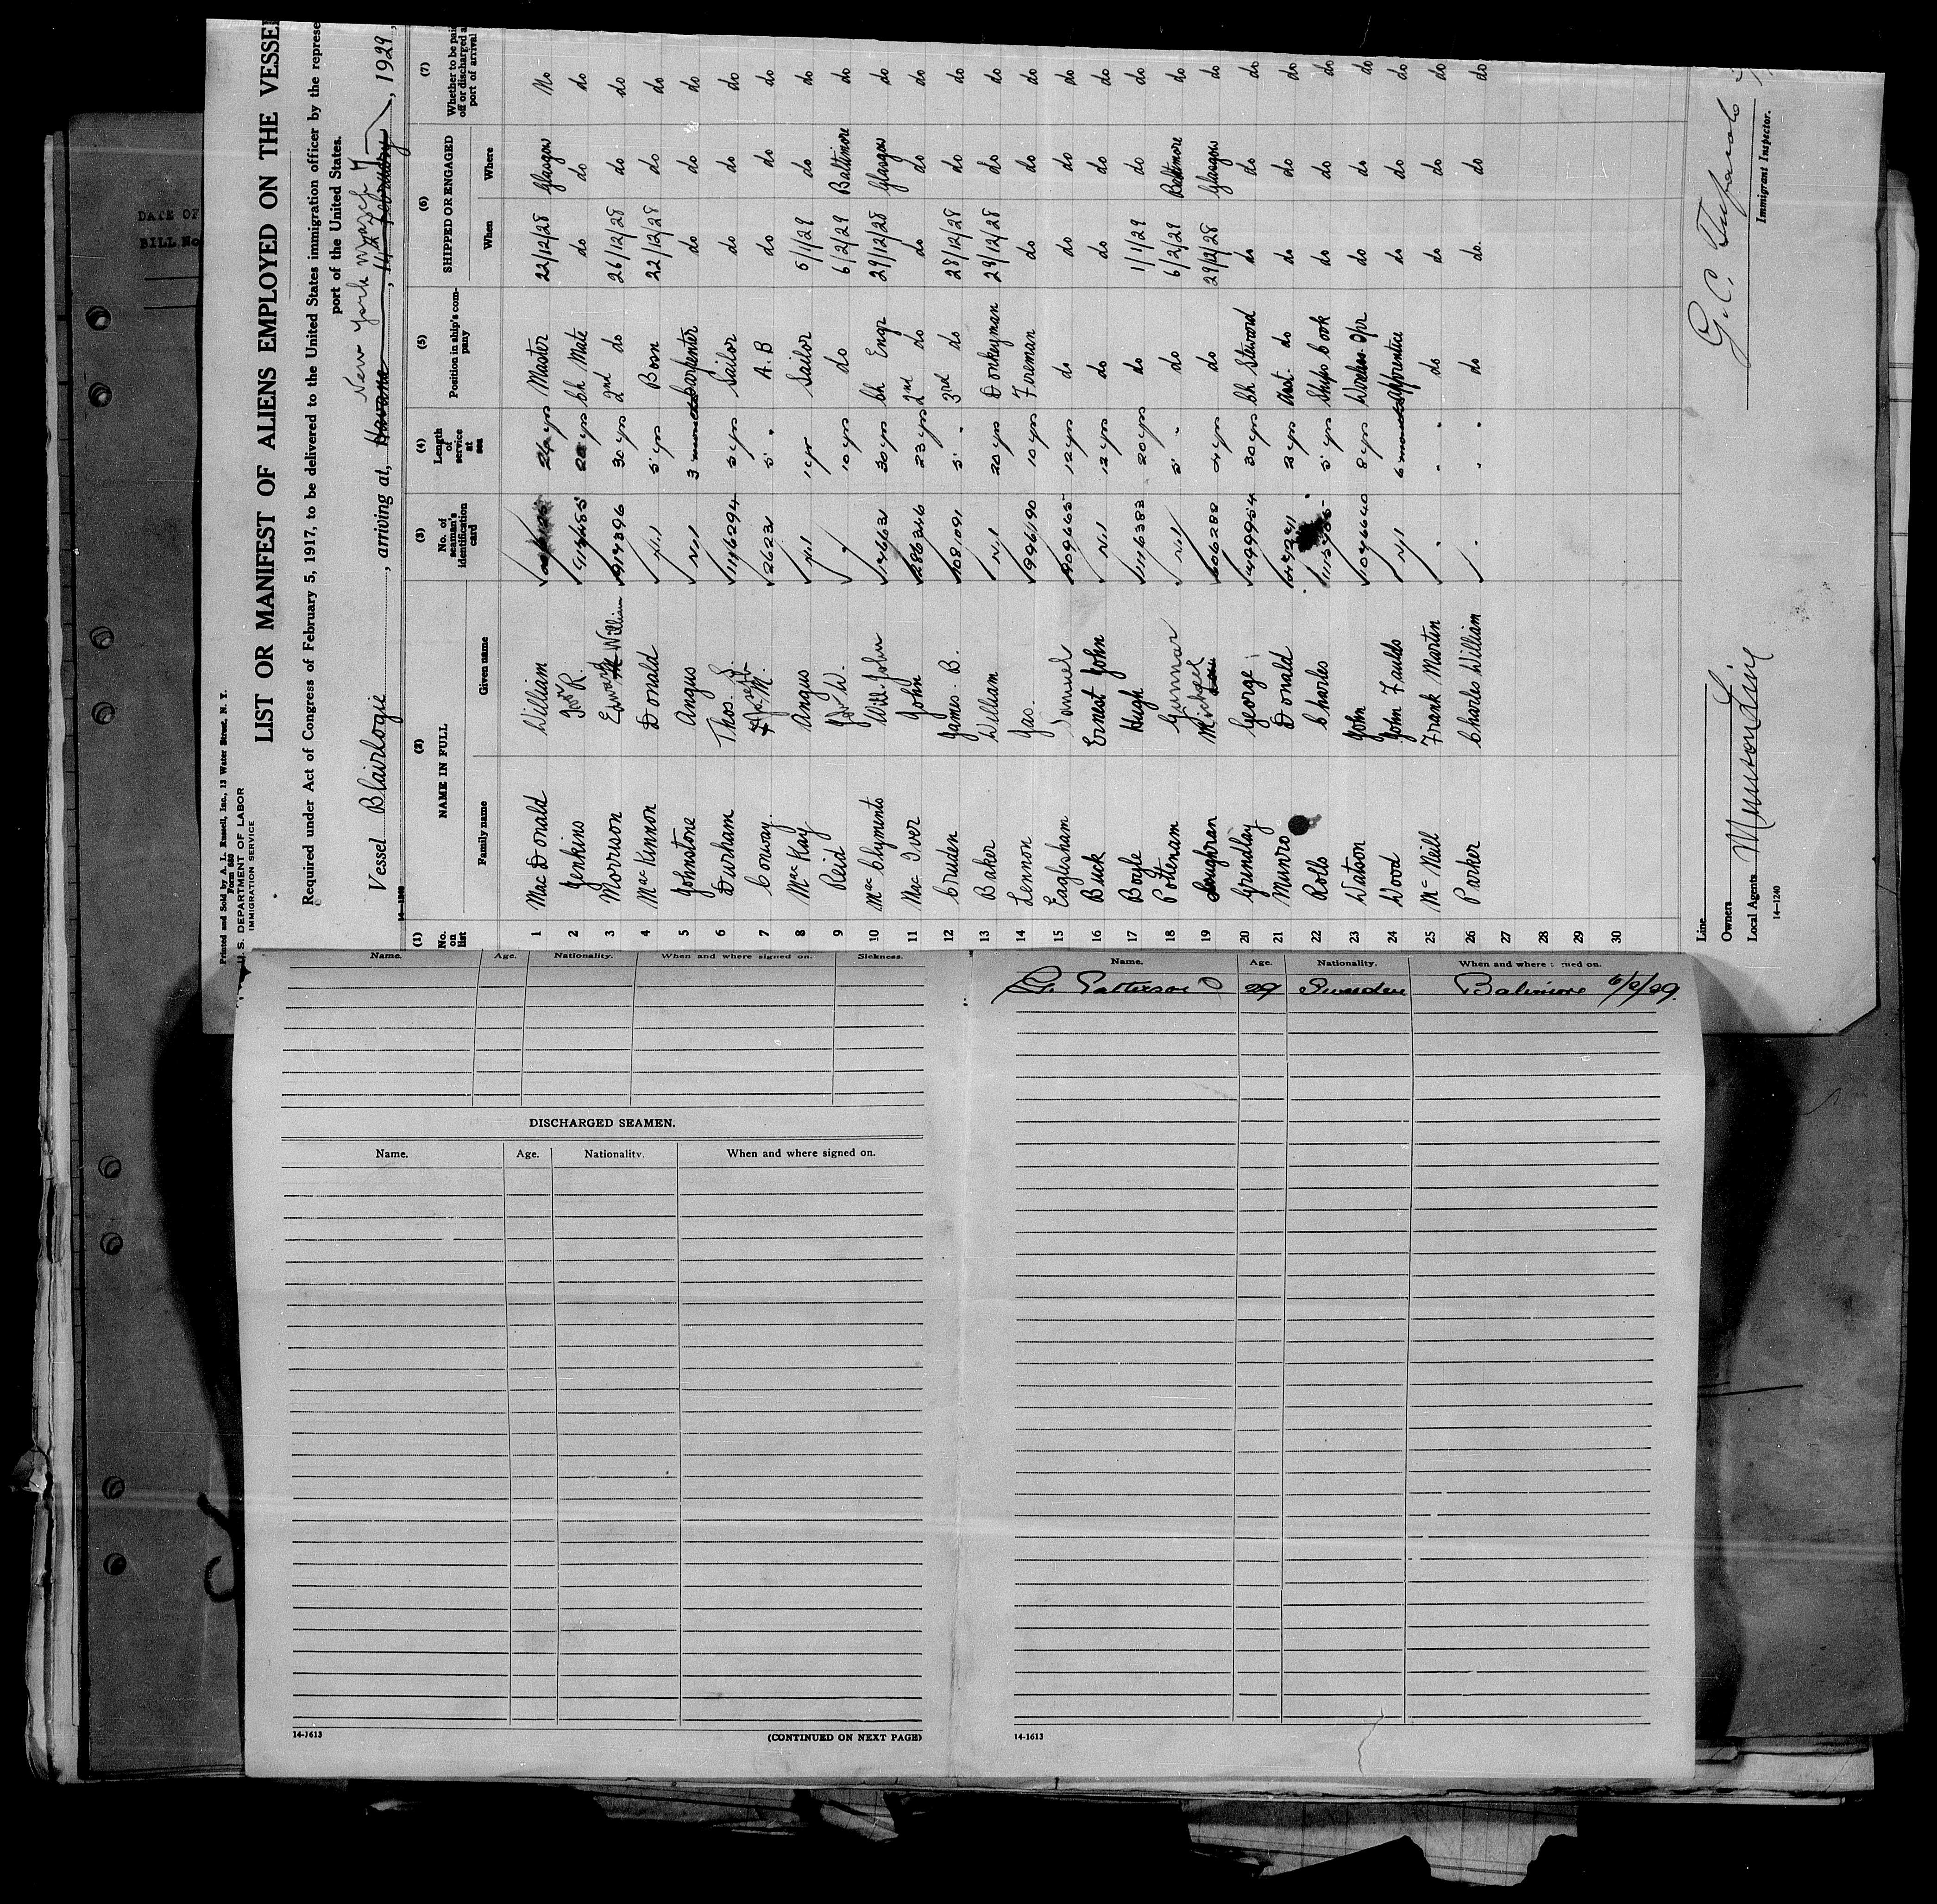 Printed and Sold by A. L. Russell, Inc., 13 Water Street, N. Y.
Form 680
U. S. DEPARTMENT OF LABOR
IMMIGRATION SERVICE
LIST OR MANIFEST OF ALIENS EMPLOYED ON THE VESSEL
Required under Act of Congress of February 5, 1917, to be delivered to the United States immigration officer by the represe
port of the United States.
New York March 7
Vessel Blairlogie, arriving at, Havana, 14th February, 1929,
14-1240
(1) (2) (3) (4) (5) (6) (7)
No. on list NAME IN FULL No. of seaman's identification card Length of service at sea Position in ship's company SHIPPED OR ENGAGED Whether to be paid off or discharged a port of arrival
Family name Given name When Where
1 MacDonald William 24 yrs Master 22/12/28 Glasgow No
2 Jenkins R. yrs Ch Mate do do do
3 Morrison Edward William 919396 30 yrs 2nd do 26/12/28 do do
4 MacKinnon Donald Nil 5 yrs Bosn 22/12/28 do do
5 Johnstone Angus Nil 3 months Carpenter do do do
6 Durham Thos. S. 1146294 5 yrs Sailor do do do
7 Conway Joseph M. 2623 5 " A.B do do do
8 MacKay Angus Nil 1 yr Sailor 5/1/29 do do
9 Reid W. " 10 yrs do 6/2/29 Baltimore do
10 MacClyments Will John 74663 30 yrs Ch Engr 29/12/28 Glasgow do
11 MacIver John 286346 23 yrs 2nd do do do do
12 Cruden James B. 1081091 5 " 3rd do 28/12/28 do do
13 Baker William Nil 20 yrs Donkeyman 29/12/28 do do
14 Lennon Jas. 996490 10 yrs Foreman do do do
15 Eaglesham Samuel 909665 12 yrs do do do do
16 Buck Ernest John Nil 12 yrs do do do do
17 Boyle Hugh 1116383 20 yrs do 1/1/29 do do
18 Pottenam Gunnar Nil 5 " do 6/2/29 Baltimore do
19 Loughran Michael 606288 4 yrs do 29/12/28 Glasgow do
20 Grundlay George 499954 30 yrs Ch Steward do do do
21 Munro Donald 2 yrs Asst. do do do do
22 Rollo Charles 5 yrs Ships Cook do do do
23 Watson John 1046640 8 yrs Wireless Opr do do do
24 Wood John Faulds Nil 6 months Apprentice do do do
25 McNeill Frank Martin " " do do do do
26 Parker Charles William " " do do do do
27
28
29
30
Line
Owners
Local Agents Munson Line
14-1240
Immigrant Inspector.
DATE OF
BILL No
Name. Age. Nationality. When and where signed on. Sickness.
DISCHARGED SEAMEN.
Name. Age. Nationality. When and where signed on.
14-1613 (CONTINUED ON NEXT PAGE)
Name. Age. Nationality. When and where signed on.
G. Patterson 29 Sweden Baltimore 6/2/29.
14-1613